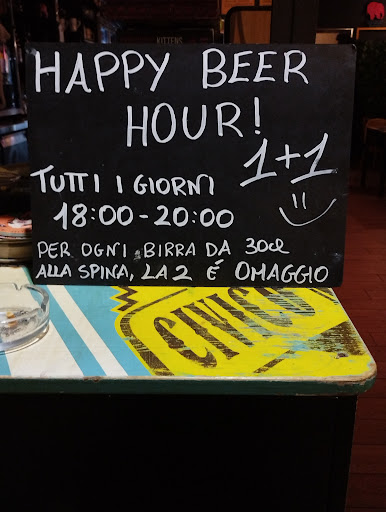 KITTENS
HAPPY BEER
HOUR!
1+1
TUTTI I GIORNI
18:00-20:00
PER OGNI BIRRA DA 30cl
ALLA SPINA, LA 2 É OMAGGIO